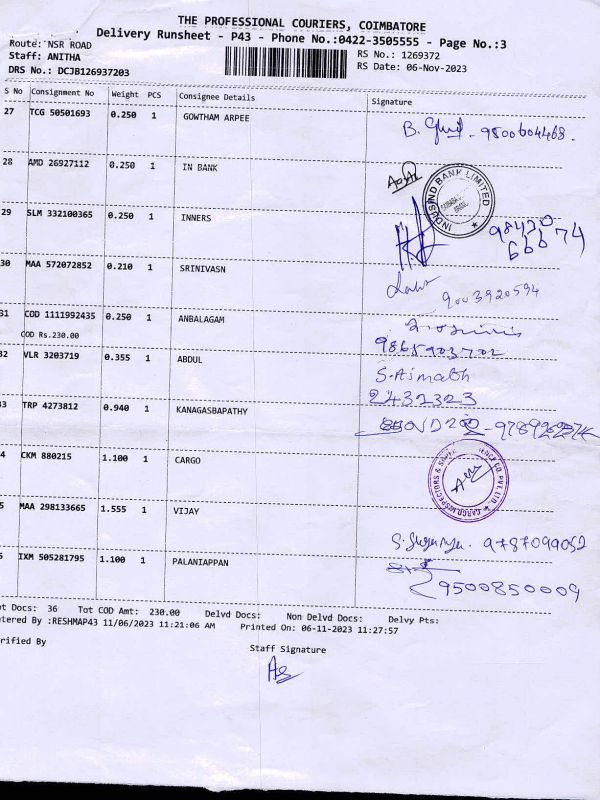 THE PROFESSIONAL COURIERS, COIMBATORE
Delivery Runsheet - P43 - Phone No.:0422-3505555 - Page No.:3
Route: NSR ROAD
Staff: ANITHA
DRS No.: DCJB126937203
RS No.: 1269372
RS Date: 06-Nov-2023
S No Consignment No Weight PCS Consignee Details Signature
27 TCG 50501693 0.250 1 GOWTHAM ARPEE B. 9800604468.
28 AMD 26927112 0.250 1 IN BANK
INDUSIND BANK LIMITED
29 SLM 332100365 0.250 1 INNERS 98420
66674
30 MAA 572072852 0.210 1 SRINIVASN
9003920594
31 COD 1111992435 0.250 1 ANBALAGAM
COD Rs.230.00
9865903702
32 VLR 3203719 0.355 1 ABDUL S.Asmath
2432323
33 TRP 4273812 0.940 1 KANAGASBAPATHY
4 CKM 880215 1.100 1 CARGO
5 MAA 298133665 1.555 1 VIJAY 9787099052
IXM 505281795 1.100 1 PALANIAPPAN
9500850009
t Docs: 36 Tot COD Amt: 230.00 Delvd Docs: Non Delvd Docs: Delvy Pts:
tered By :RESHMAP43 11/06/2023 11:21:06 AM Printed On: 06-11-2023 11:27:57
rified By
Staff Signature